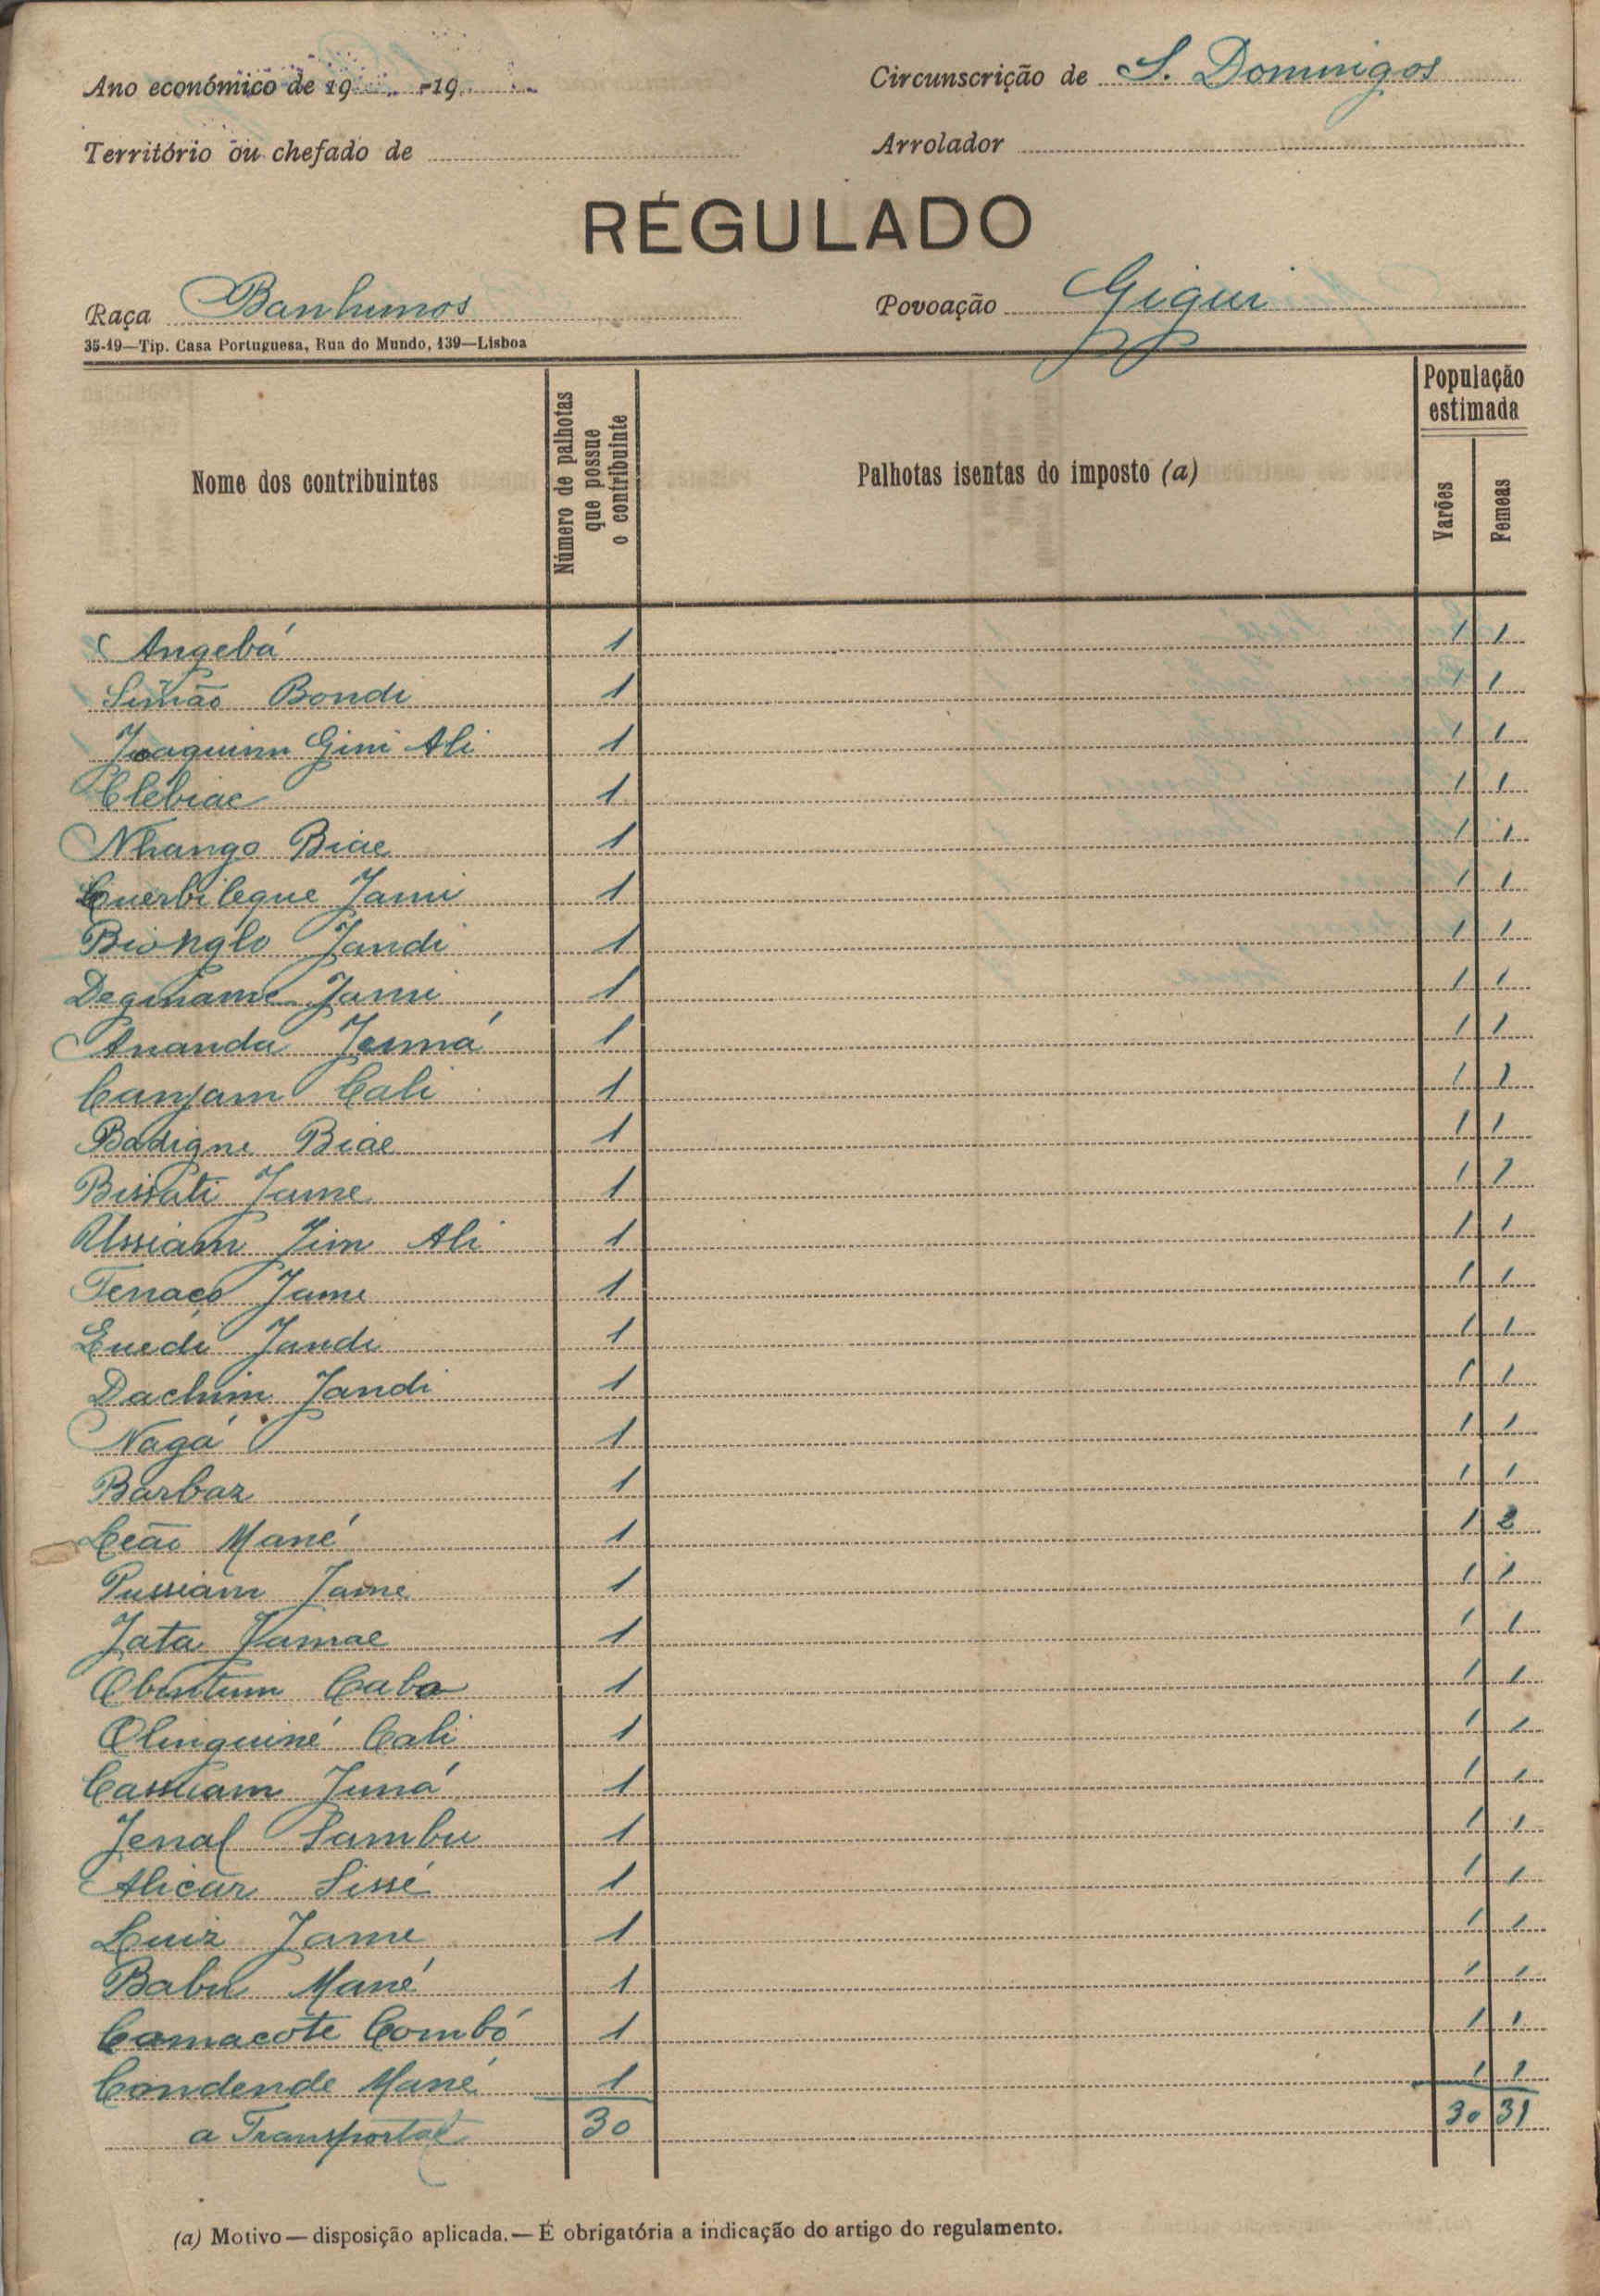 Ano económico de 19 -19
Circunscrição de S. Domingos
Território ou chefado de
Arrolador
RÉGULADO
Raça Banhunos
Povoação Giqui
35-19—Tip. Casa Portuguesa, Rua do Mundo, 139—Lisboa
Nome dos contribuintes
Número de palhotas que possue o contribuinte
Palhotas isentas do imposto (a)
População estimada
Varões
Femeas
Angebá 1 1 1
Simão Bondi 1 1 1
Joaquim Gini Ali 1 1 1
Clebiac 1 1 1
Nhango Biae 1 1 1
Cuerbileque Jami 1 1 1
Bionglo Jandi 1 1 1
Deginame Jami 1 1 1
Ananda Jemná 1 1 1
Canjam Cali 1 1 1
Badigni Biae 1 1 1
Bissati Jame 1 1 1
Ussiam Jim Ali 1 1 1
Tenaco Jame 1 1 1
Euedi Jandi 1 1 1
Dachim Jandi 1 1 1
Nagá 1 1 1
Barbaz 1 1 1
Leão Mané 1 1 2
Pussiam Jame 1 1 1
Jata Jamae 1 1 1
Obintum Cabo 1 1 1
Olinguiné Cali 1 1 1
Cassiam Juná 1 1 1
Jenal Sambu 1 1 1
Alicar Sissé 1 1 1
Luiz Jame 1 1 1
Babu Mané 1 1 1
Camacote Combó 1 1 1
Condende Mané 1 1 1
a Transportar 30 30 31
(a) Motivo — disposição aplicada. — É obrigatória a indicação do artigo do regulamento.